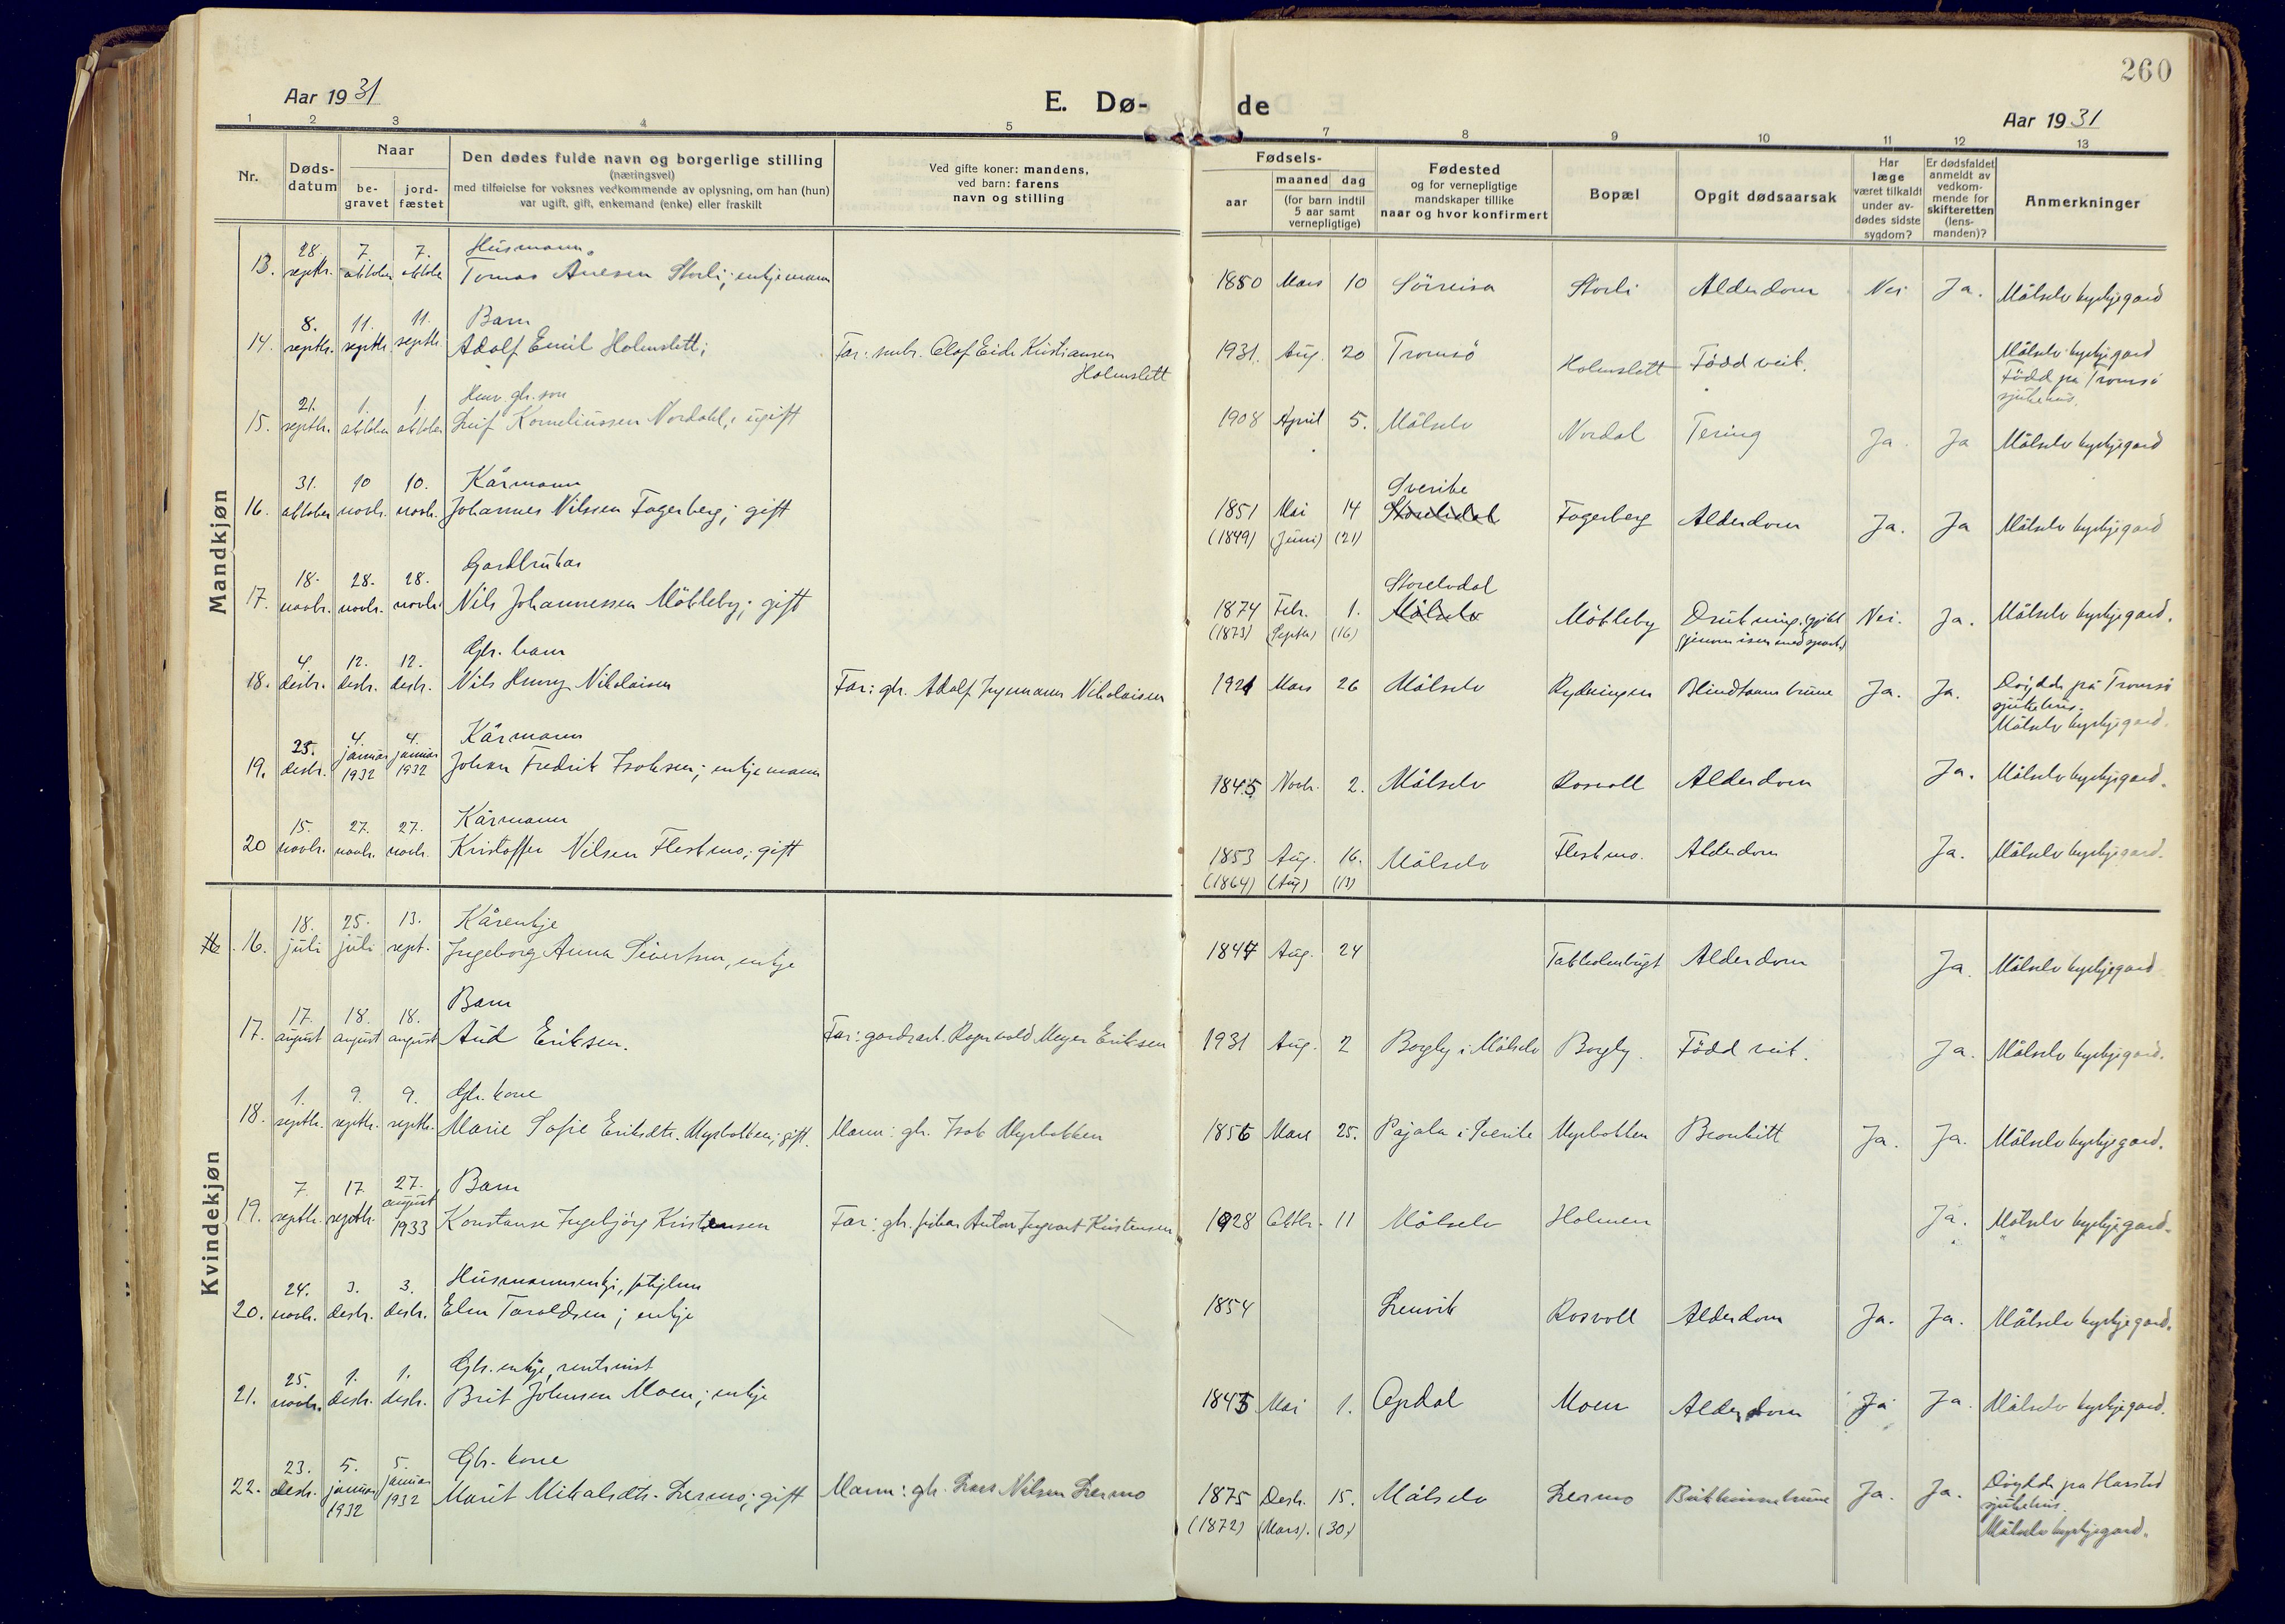 260
Aar 1931
E. Dø-
de
Aar 1931
1 2 3 4 5 7 8 9 10 11 12 13
Nr.
Døds-
datum
Naar
be-
gravet
jord-
fæstet
Den dødes fulde navn og borgerlige stilling
(næringsvei)
med tilføielse for voksnes vedkommende av oplysning, om han (hun)
var ugift, gift, enkemand (enke) eller fraskilt
Ved gifte koner: mandens,
ved barn: farens
navn og stilling
Fødsels-
aar
maaned dag
(for barn indtil
5 aar samt
vernepligtige)
Fødested
og for vernepligtige
mandskaper tillike
naar og hvor konfirmert
Bopæl
Opgit dødsaarsak
Har
læge
været tilkaldt
under av-
dødes sidste
sygdom?
Er dødsfaldet
anmeldt av
vedkom-
mende for
skifteretten
(lens-
manden)?
Anmerkninger
Mandkjøn
28. 7. 7. Husmann
13. septbr. oktober oktober Tomas Åresen Storli; enkjemann 1850 Mars 10 Sørreisa Storli Alderdom Nei Ja. Målselv kyrkjegard
8. 11. 11. Barn
14. septbr. septbr. septbr. Adolf Emil Holmslett; Far: smbr. Olof Eide Kristiansen 1931. Aug. 20 Tromsö Holmslett Född veik. Målselv kyrkjegard
Holmslett Född på Tromsö
sjukehus.
21. 1. 1. son
15. septbr. oktober oktober Leif Korneliussen Nordahl; ugift 1908 April 5. Målselv Nordal Tering Ja. Ja Målselv kyrkjegard
31. 10 10. Kårmann Sverike
16. oktober novbr. novbr. Johannes Nilssen Fagerberg; gift 1851 Mai 14 Fagerberg Alderdom Ja. Ja Målselv kyrkjegard
(1849) (Juni) (21)
18. 28. 28. Gardbrukar Storelvdal
17. novbr. novbr. novbr. Nils Johannessen Mökleby; gift 1874 Febr. 1. Målselv Mökleby Drukning. (gjekk Nei. Ja. Målselv kyrkjegard.
(1873) (Septbr) (16) gjennom isen med spark)
4. 12. 12. Gbr. barn
18. desbr. desbr. desbr. Nils Henry Nikolaisen Far: gbr. Adolf Ingemann Nikolaisen 1921 Mars 26 Målselv Rydningen Blindtarmbrune Ja. Ja. Döydde på Tromsö
sjukehus.
Målselv kyrkjegard.
25. 4. 4. Kårmann
19. desbr. januar januar Johan Fredrik Isaksen; enkjemann 1845 Novbr. 2. Målselv Rosvoll Alderdom Ja. Målselv kyrkjegard.
1932 1932
15. 27. 27. Kårmann
20 novbr. novbr. novbr. Kristoffer Nilsen Flestmo; gift 1853 Aug. 16. Målselv Flestmo. Alderdom Ja. Målselv kyrkjegard.
(1864) (Aug) (13)
Kvindekjøn
18. 25. 13. Kårenkje
16. 16. juli juli sept. Ingeborg Anna Sivertsen, enkje 1847 Aug. 24 Takholmbugt Alderdom Ja. Målselv kyrkjegard
17. 18. 18. Barn
17. august august august Aud Eriksen. Far: gardsarb. Ragnvald Meyer Eriksen 1931 Aug. 2 Bogly i Målselv Bogly. Född veik. Ja. Målselv kyrkjegard.
1. 9. 9. Gbr. kone
18. septbr. septbr. septbr. Marie Sofie Eriksdtr. Myrbakken; gift. Mann: gbr. Isak Myrbakken 1856 Mars 25. Pajala i Sverike Myrbakken Bronkitt Ja. Ja. Målselv kyrkjegard.
7. 17. 27. Barn
19. septbr. septbr. august Konstanse Ingebjörg Kristensen Far: gbr. fiskar Anton Ingvart Kristensen 1928 Oktbr. 11 Målselv Holmen Ja. Målselv kyrkjegard.
1933
24. 3. 3. Husmannsenkje,
20. novbr. desbr. desbr. Elen Taraldsen; enkje 1854 Lenvik Rosvoll Alderdom Ja. Ja. Målselv kyrkjegard.
25. 1. 1. Gbr. enkje,
21. novbr. desbr. desbr. Brit Johnsen Moen; enkje 1845 Mai 1. Opdal Moen Alderdom Ja Ja. Målselv kyrkjegard.
23. 5. 5. Gbr. kone
22. desbr. januar januar Marit Mikalsdtr. Lermo; gift Mann: gbr. Lars Nilsen Lermo 1875 Desbr. 15. Målselv Lermo Bukhinnebrune Ja. Ja. Döydde på Harstad
1932 1932 (1872) (Mars). (30.) sjukehus.
Målselv kyrkjegard.